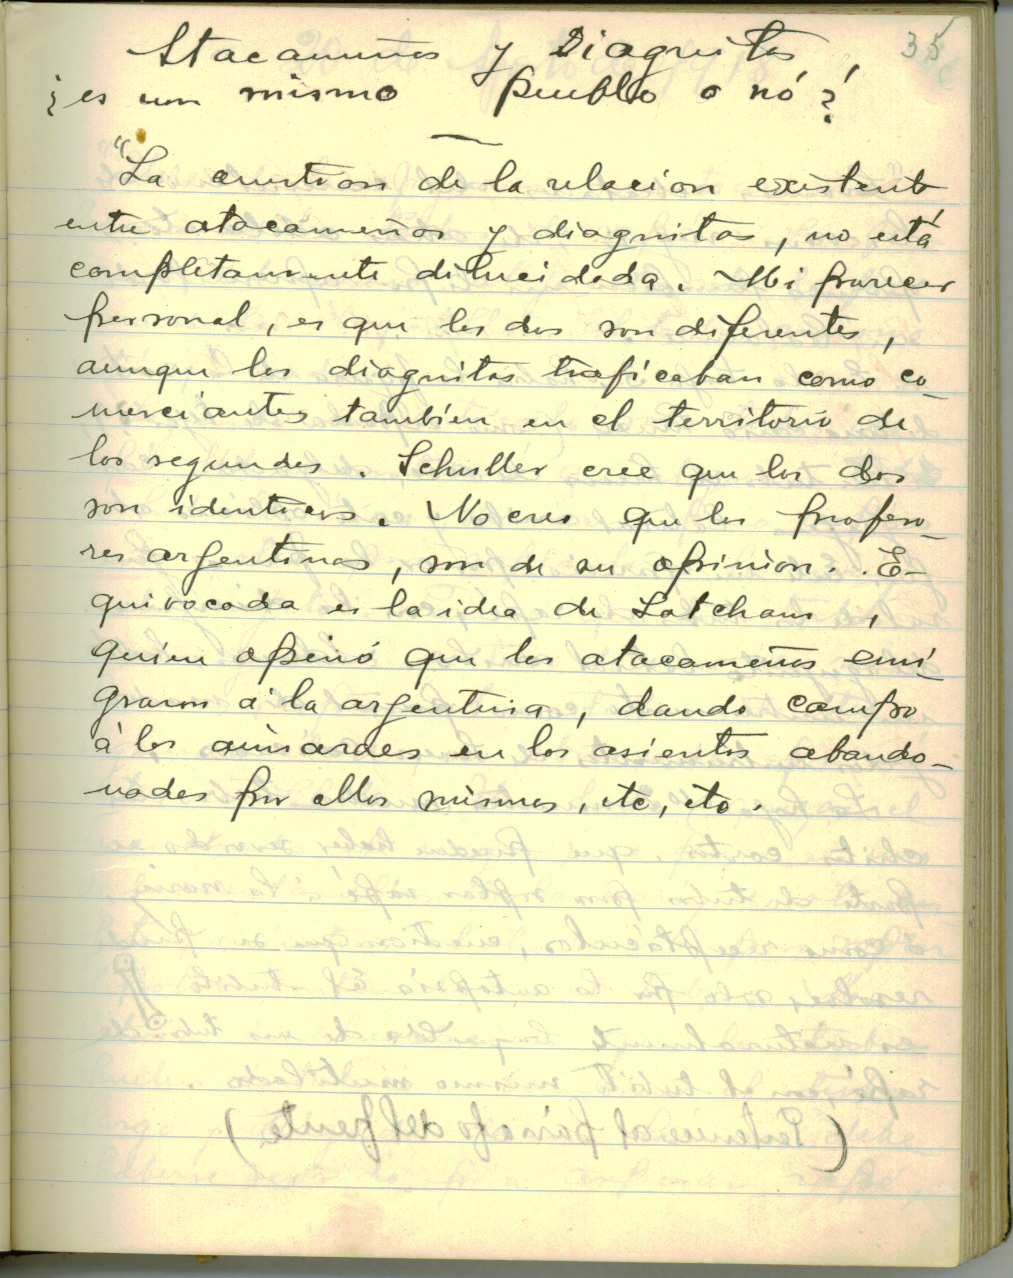 35
Atacameños y Diaguitas,
¿es un mismo pueblo o nó?
"La cuestion de la relacion existente
entre atacameños y diaguitas, no está
completamente dilucidada. Mi parecer
personal, es que los dos son diferentes,
aunque los diaguitas traficaban como co-
merciantes tambien en el territorio de
los segundos. Schuller cree que los dos
son identicos. No creo que los profeso-
res argentinos, son de su opinion. E-
quivocada es la idea de Latcham,
quien opinó que los atacameños emi-
graron á la argentina, dando campo
á los aimaraes en los asientos abando-
nados por ellos mismos, etc, etc.